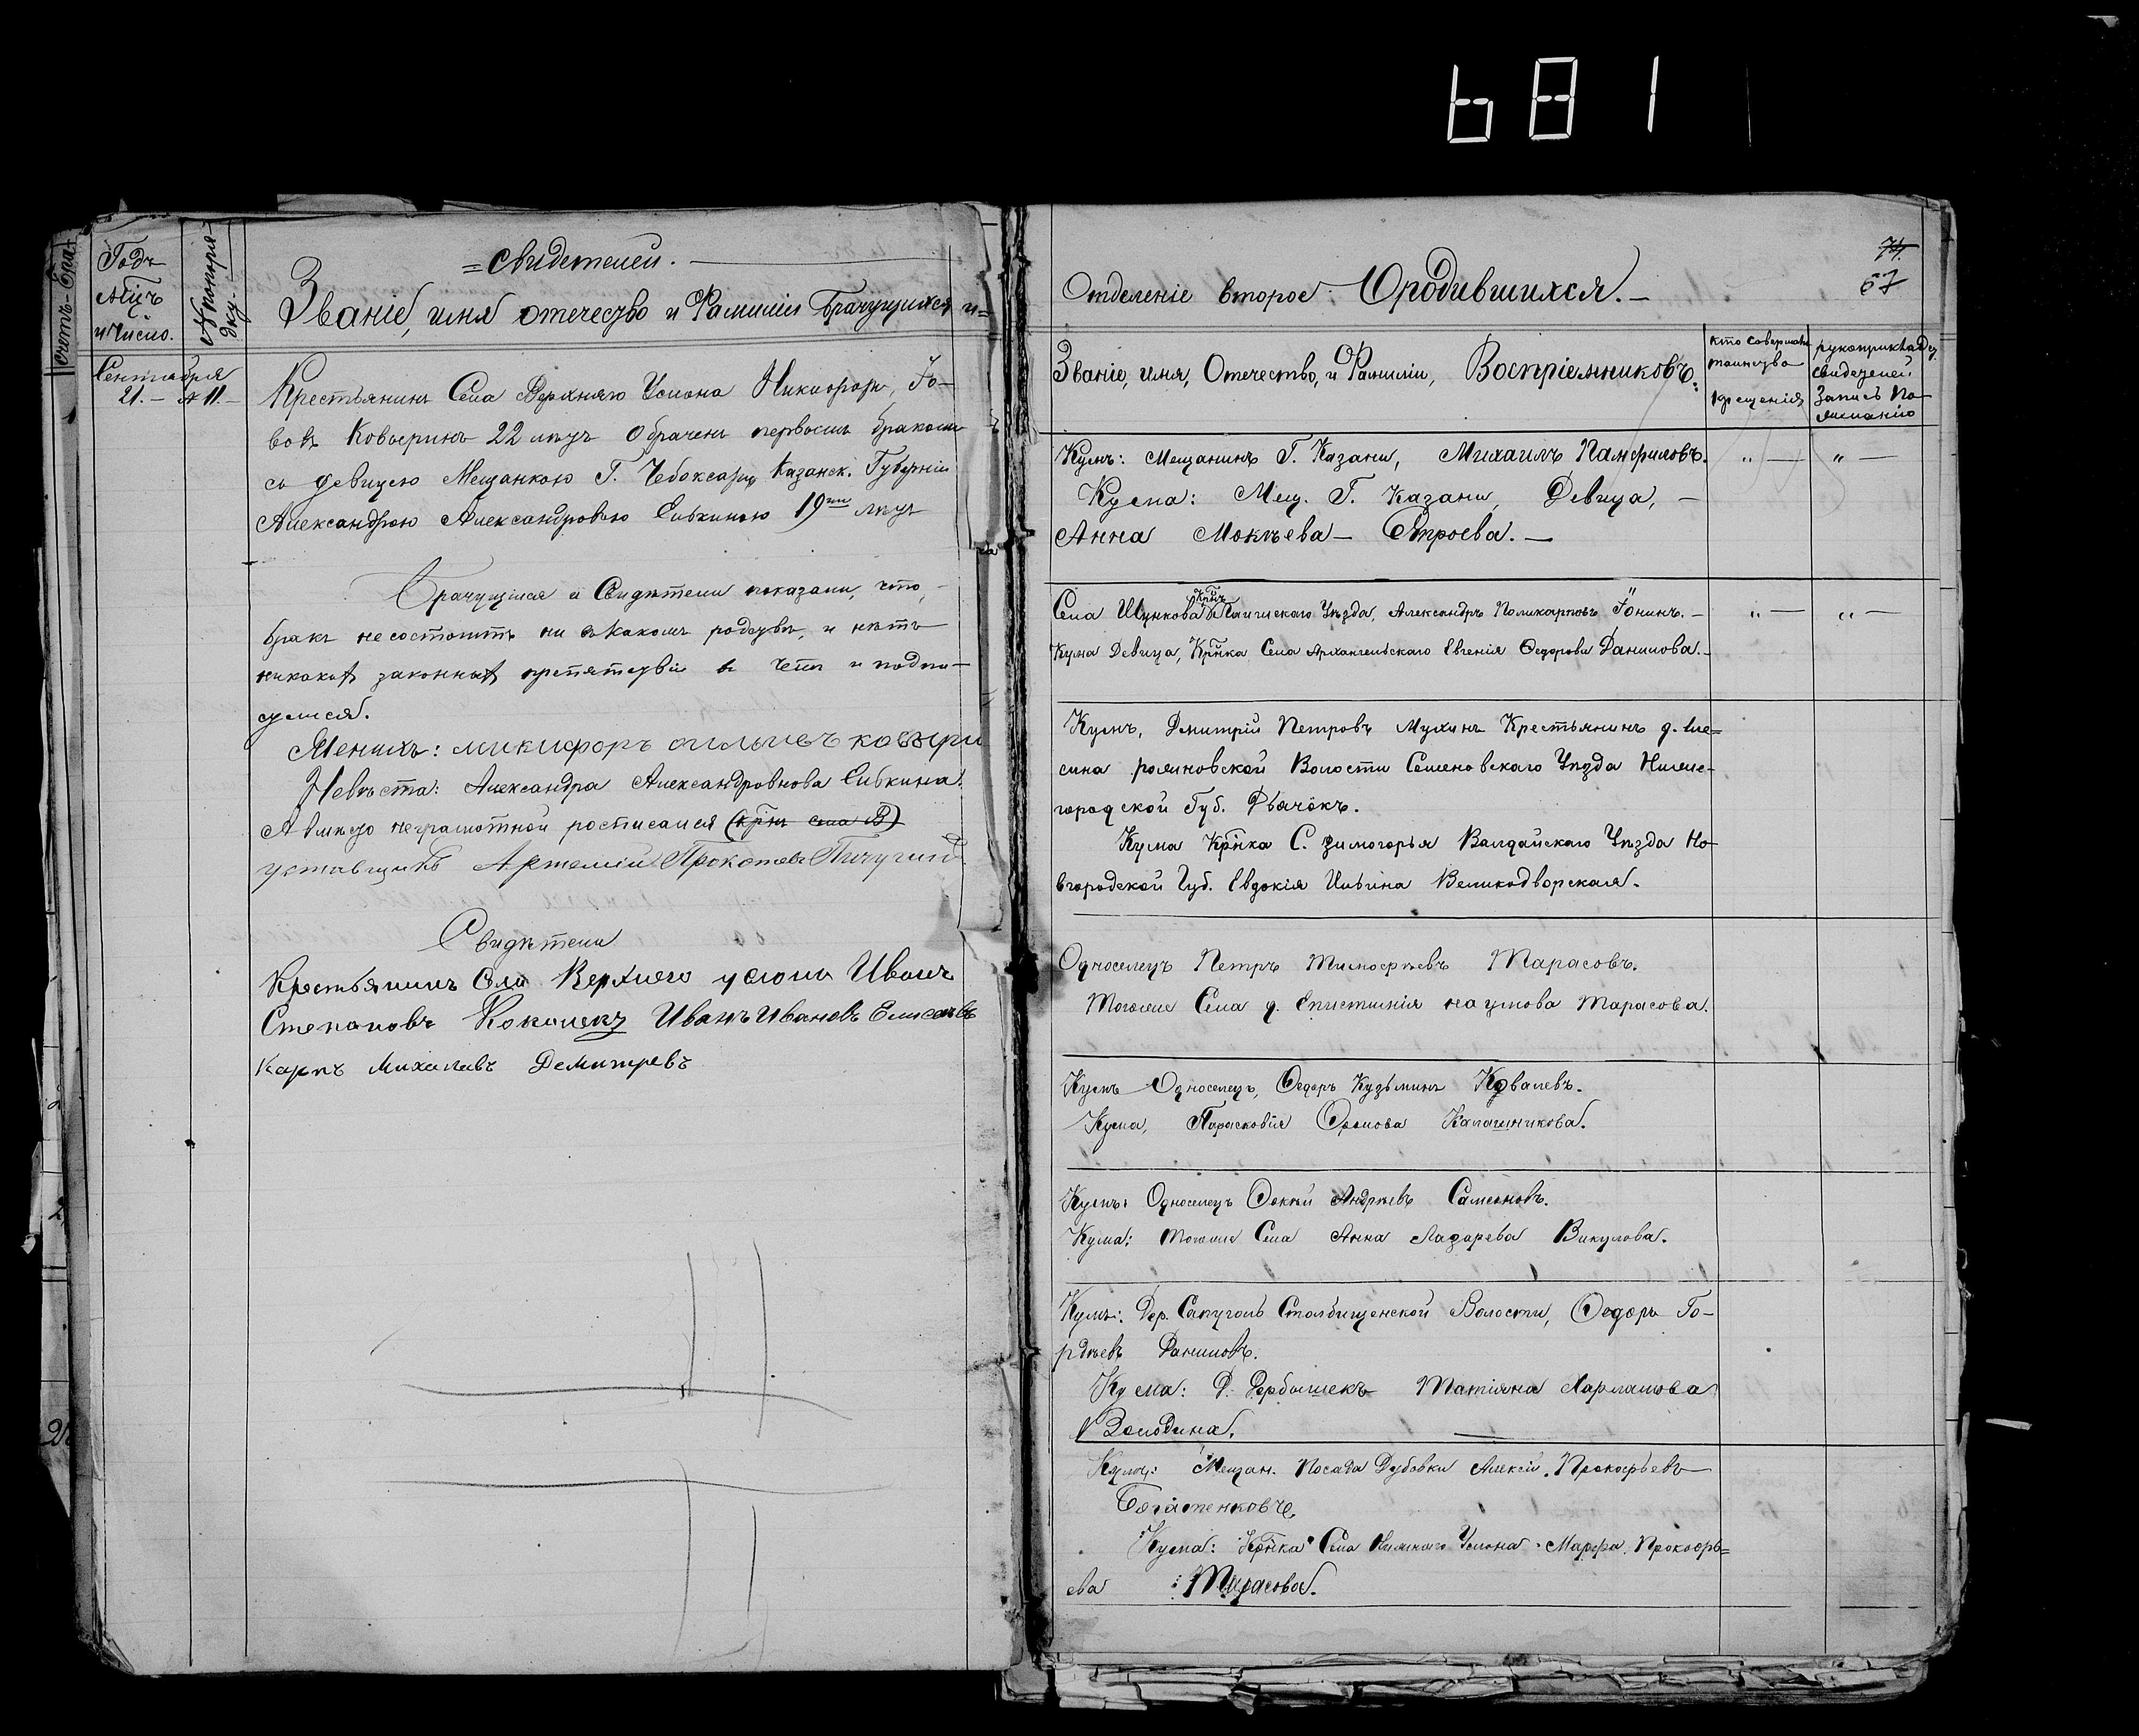 681
счетъ Бра
Годъ
Мцъ
и Число.
№ по поряд-
ку.
=свидетелей.
Званіе, имя отечество и Фамиліи Брачущихся и=
Сентября
21. — № 11. —
Крестьянинъ Села Верхняго Услона Никифоръ, Іо-
вовъ Ковыринъ 22 лѣтъ обрачен первымъ бракомъ
съ девицею Мещанкою Г. Чебоксары Казанск. Губерніи
Александрою Александровою Сивкиною 19ти лѣтъ
Брачущіися и Свидѣтели показали, что,
бракъ несостоитъ ни въ какомъ родствѣ, и нѣтъ
никаких законных препятствіи въ чемъ и подпи-
суемся.
Женихъ: микифоръ ковыри
Невѣста: Александра Александровнова Сивкина.
А вместо неграмотной росписался (крнъ села В)
уставщикъ Артемій Прокопев Пичугинъ
Свидѣтели
Крестьянинъ Села Верхнего услона Иванъ
Степановъ Кокошекъ Иванъ Ивановъ Елисеевъ
карпъ Михаилавъ Демитревъ
74.
67
Отделеніе второе: Ородившихся. —
Званіе, имя, Отечество, и Фамиліи, Воспріемниковъ:
кто совершалъ
таинство
крещенія
рукоприклад.
свидетелей
Запись по
желанію
Кумъ: Мещанинъ Г. Казани, Михаилъ Памфиловъ. „ — „ —
Кума: Мещ. Г. Казани, Девица, —
Анна Мокѣева — Строева. —
крнъ
Села Шункова Лаишскаго Уѣзда, Александръ Поликарповъ Іонинъ. — „ — „ —
Кума Девица, Крнка Села Архангельскаго Евгенія Федорова Данилова. —
Кумъ, Дмитрій Петровъ Мухинъ Крестьянинъ д. Ме=
сина Волости Семеновскаго Уѣзда Ниже-
городской Губ. Дьячокъ.
Кума Крнка С. Зимогорья Валдайскаго Уѣзда Но-
вгородской Губ. Евдокія Ильина Великодворская.
Односелецъ Петръ Тимофѣевъ Тарасовъ.
Тогоже Села д. Епистимія наумова Тарасова.
Кумъ Односелецъ, Федоръ Кузьминъ Ковалевъ.
Кума, Парасковія Фролова Калашникова.
Кумъ: Односелецъ Фокѣй Андрѣевъ Самсоновъ.
Кума: Тогоже Села Анна Лазарева Викулова.
Кумъ: Дер. Сапуголь Столбищенской Волости, Федоръ Го-
рдѣевъ Даниловъ.
Кума: Д. Дербышекъ Татіяна Харлашова
Володина.
Кумъ: Мещан. Посада Дубовки Алексій Прокофьевъ
Богатенковъ.
Кума: Крнка Села Нижняго Услона Марфа Прокофь=
ева Тарасова.